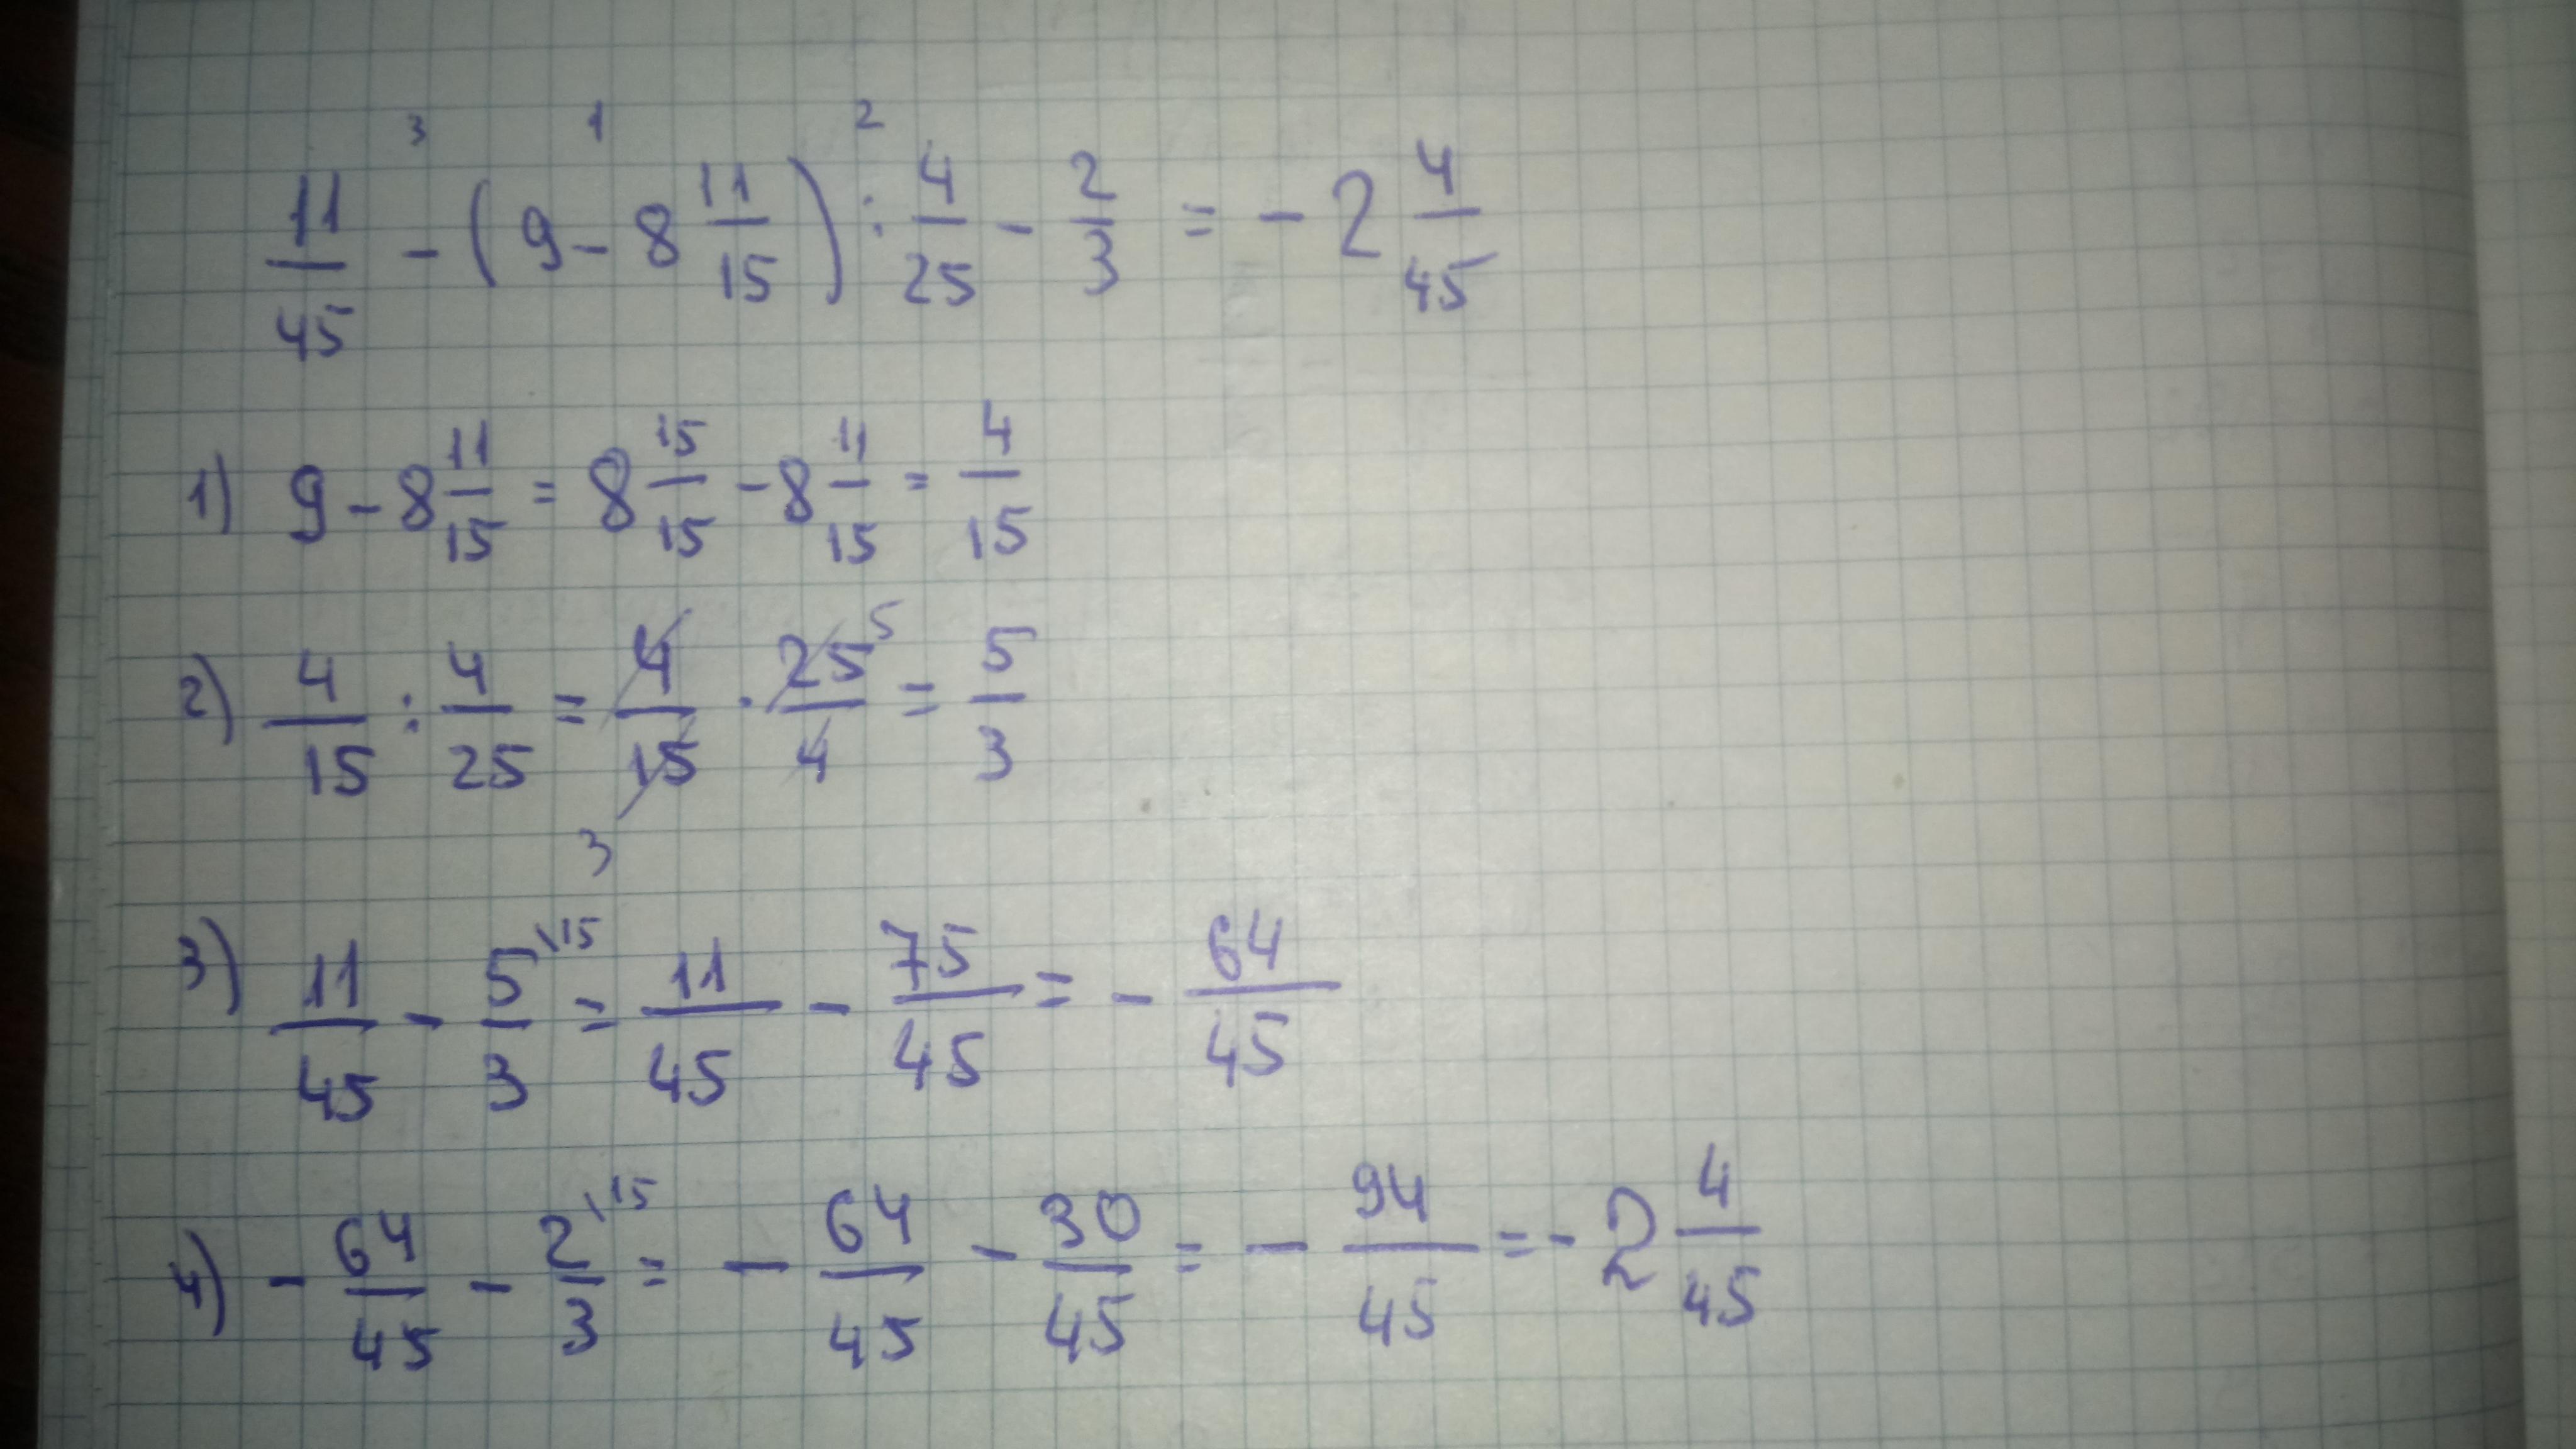 3 1 2
11/45 - (9 - 8 11/15) : 4/25 - 2/3 = - 2 4/45
1) 9 - 8 11/15 = 8 15/15 - 8 11/15 = 4/15
2) 4/15 : 4/25 = 4/15 · 25/4 = 5/3
5
3
3) 11/45 - 5\15/3 = 11/45 - 75/45 = - 64/45
4) - 64/45 - 2\15/3 = - 64/45 - 30/45 = - 94/45 = - 2 4/45